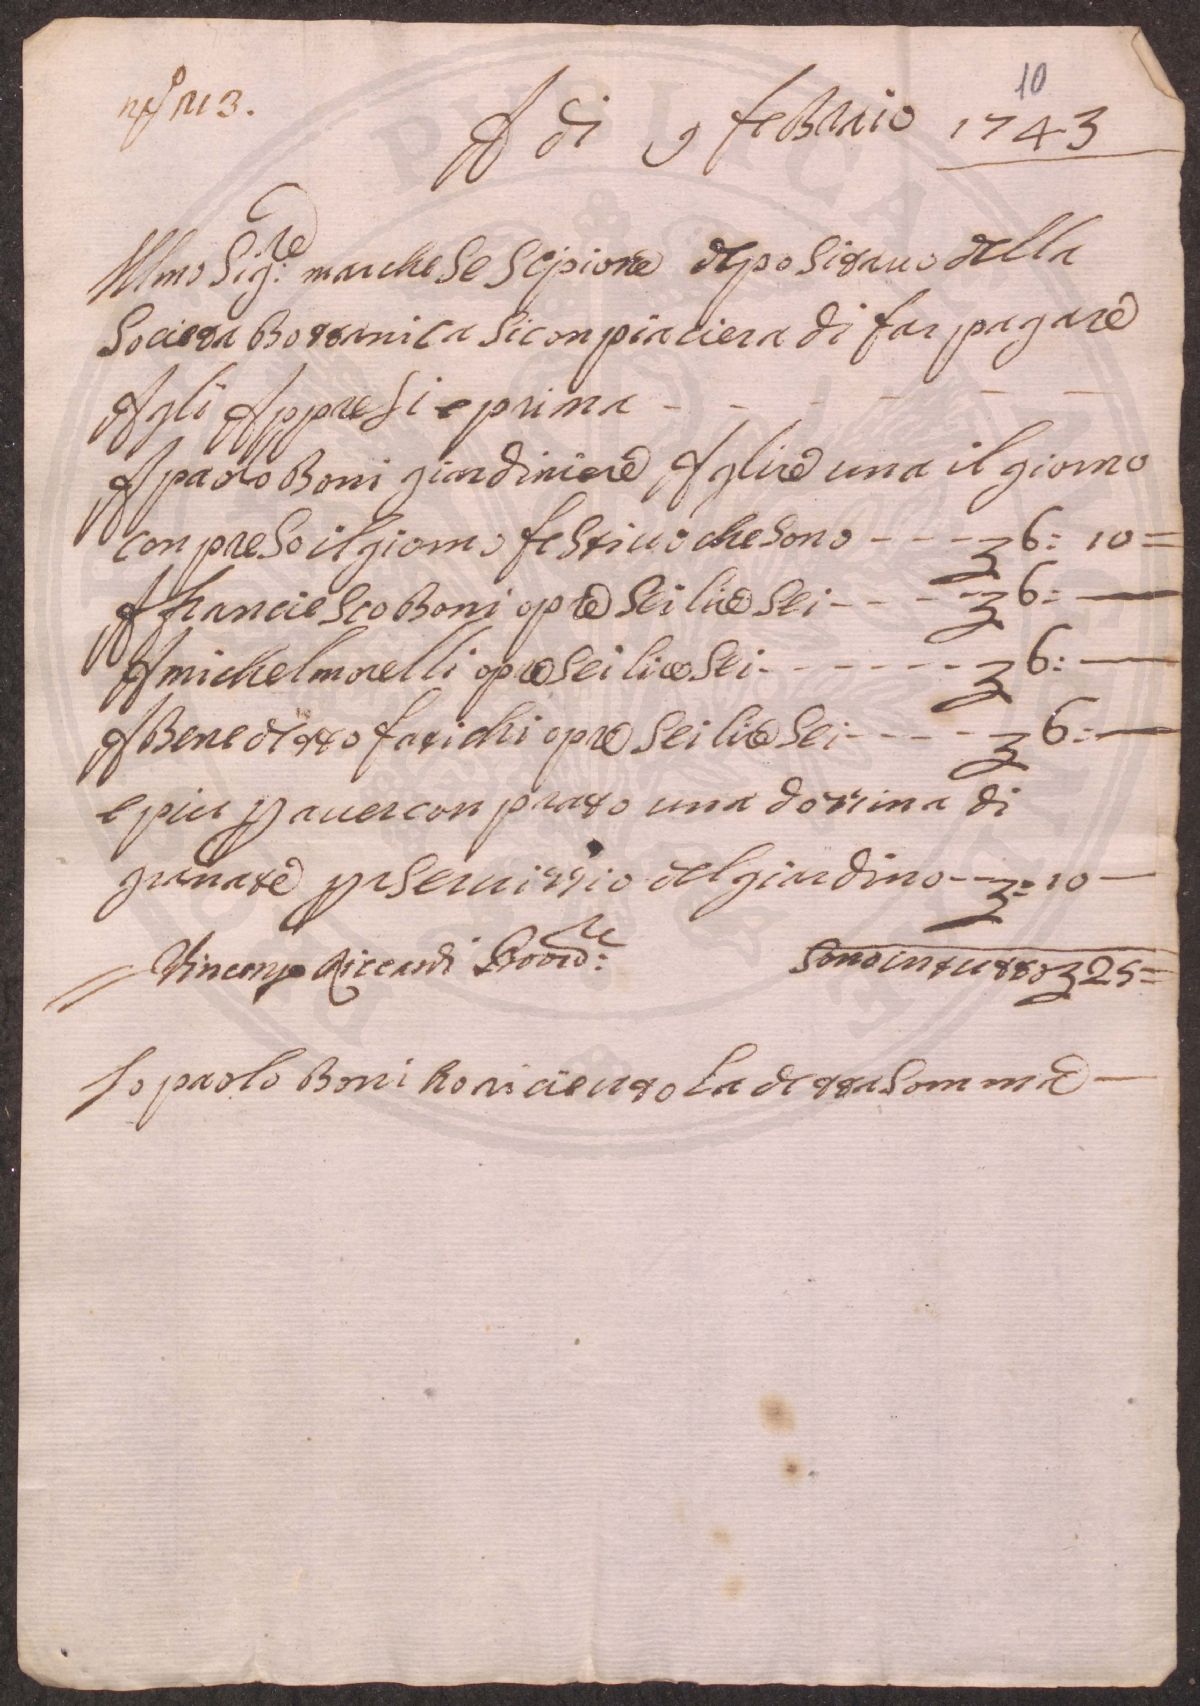 10
nº 213.
A di 9 febraio 1743
Illmo Sig:re marchese Scipione depositavo della
Societa Bottanica si conpiaciera di far pagare
Agli Appresi e prima
A paolo Boni giardiniere A lire una il giorno
conpreso il giorno festivo che sono 6: 10
A franciesco Boni opre sei lire sei 6:
A michel morelli opre sei lire sei 6:
A Benedetto fatichi opre sei lire sei 6:
e piu p aver conprato una dozina di
granate p servizzio del giardino 10
Vincenzo Riccardi Provd:re sono in tutto 25
Io paolo Boni ho riceuto La detta somma